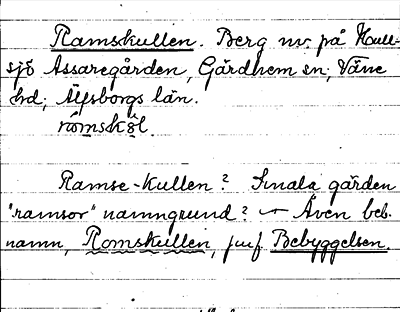 Ramskullen. Berg nv. på Hull-
sjö Assaregården, Gärdhem sn; Väne
hd; Älfsborgs län.
rômskŏ̤l
Ramse-Kullen? Smala gärden
"ramsor" namngrund? — Även beb.
namn, Romskullen, jmf Bebyggelsen.